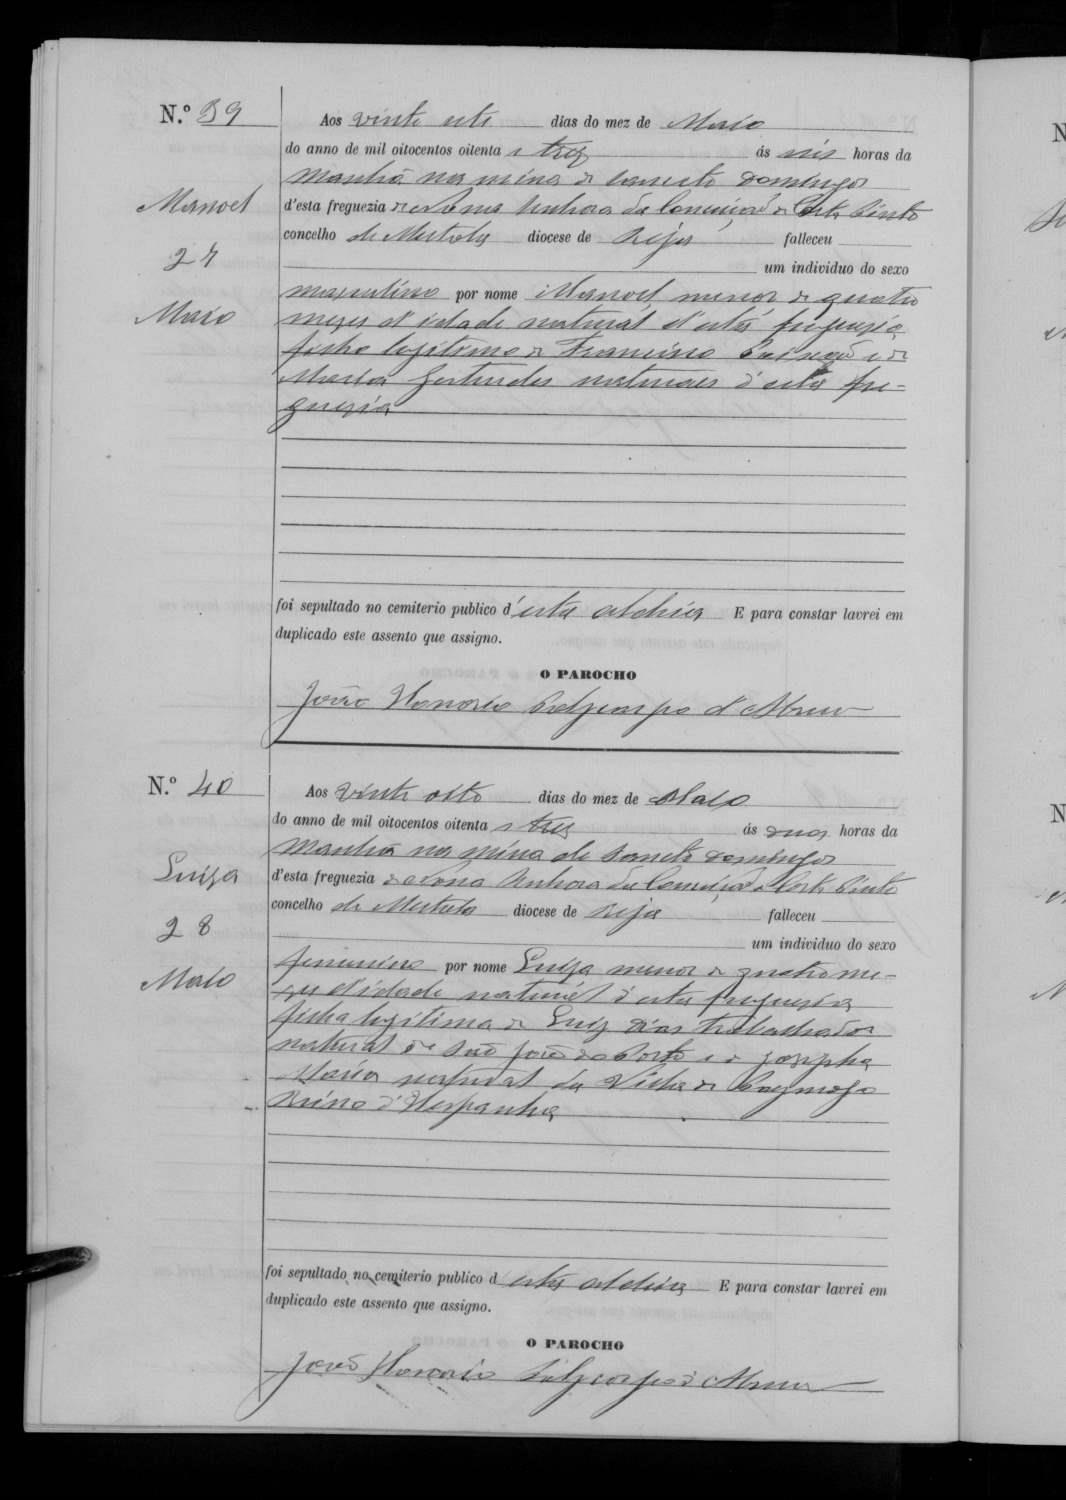 N.º 39
Aos vinte sete dias do mez de Maio
do anno de mil oitocentos oitenta e trez ás seis horas da
Manhã na mina de Sancto Domingos
Manoel
d'esta freguezia de Nossa Senhora da Conceição de Corte Pinto
concelho de Mertola diocese de Beja falleceu
27
um individuo do sexo
masculino por nome Manoel menor de quatro
Maio
mezes d'idade natural d'esta freguezia
filho legitimo de Francisco e de
Maria Gertrudes naturaes d'esta fre-
guezia
foi sepultado no cemiterio publico d'esta aldeia E para constar lavrei em
duplicado este assento que assigno.
O PAROCHO
João Honorio Policarpo d'Abreu
N.º 40
Aos vinte oito dias do mez de Maio
do anno de mil oitocentos oitenta e trez ás duas horas da
Manhã na mina de Sancto Domingos
Luiza
d'esta freguezia de Nossa Senhora da Conceição de Corte Pinto
concelho de Mertola diocese de Beja falleceu
28
um individuo do sexo
femenino por nome Luiza menor de quatro me-
Maio
zes d'idade natural d'esta freguezia
filha legitima de Luiz Dias trabalhador
natural de São João do Porto e de Josepha
Maria natural da Villa de
Reino d'Hespanha
foi sepultado no cemiterio publico d'esta aldeia E para constar lavrei em
duplicado este assento que assigno.
O PAROCHO
João Honorio Policarpo d'Abreu